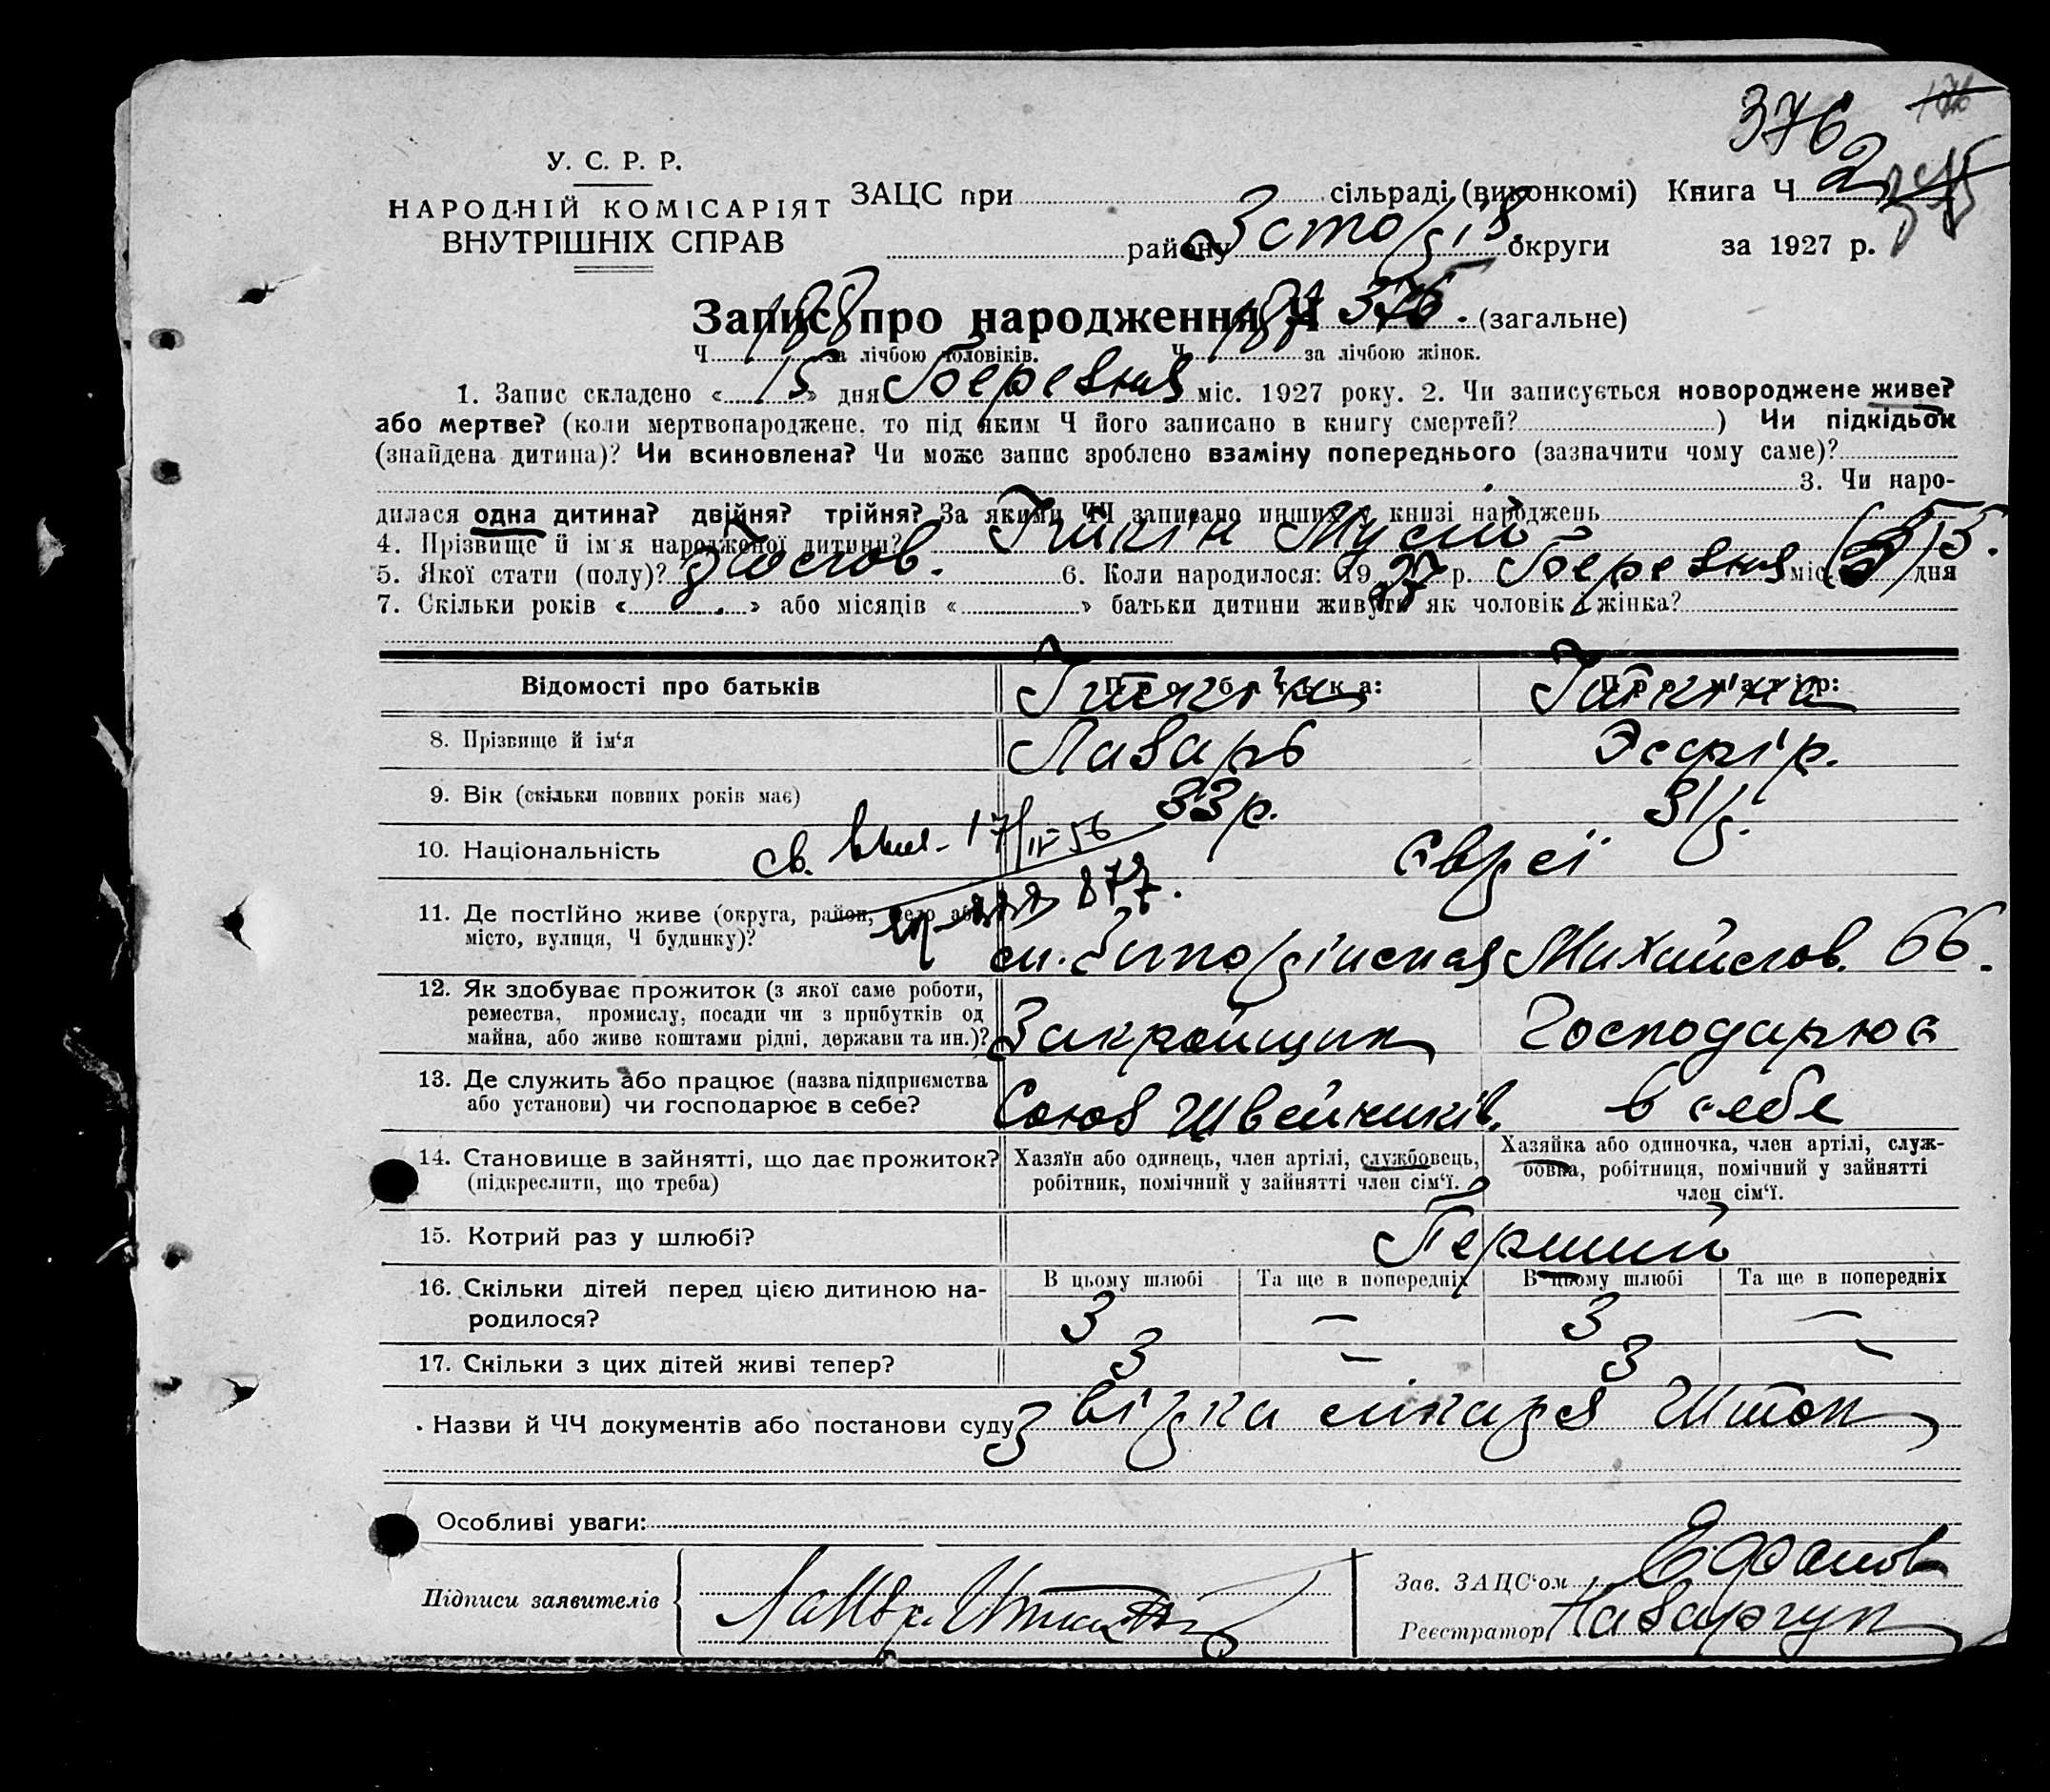 376
У. С. Р. Р.
НАРОДНІЙ КОМІСАРІЯТ
ВНУТРІШНІХ СПРАВ
ЗАЦС при сільраді (виконкомі) Книга Ч 2
району округи за 1927 р.
Запис про народження Ч 376. (загальне)
Ч 188 за лічбою чоловіків. Ч за лічбою жінок.
1. Запис складено «15» дня березня міс. 1927 року. 2. Чи записується новороджене живе?
або мертве? (коли мертвонароджене, то під яким Ч його записано в книгу смертей? ) Чи підкідьок
(знайдена дитина)? Чи всиновлена? Чи може запис зроблено взаміну попереднього (зазначити чому саме)?
3. Чи наро-
дилася одна дитина? двійня? трійня? За якими ЧЧ записано инших в книзі народжень
4. Прізвище й ім'я народженої дитини? Мусій
5. Якої стати (полу)? чолов. 6. Коли народилося: 1927 р. березня міс. 5 дня
7. Скільки років « » або місяців « » батьки дитини живуть як чоловік і жінка?
Відомості про батьків Про батька: Про матір:
8. Прізвище й ім'я Лазарь Эсфір.
9. Вік (скільки повних років має) 33 р. 31 р.
10. Національність євреї
11. Де постійно живе (округа, район, село або
місто, вулиця, Ч будинку)? Михайлов. 66.
12. Як здобуває прожиток (з якої саме роботи,
ремества, промислу, посади чи з прибутків од
майна, або живе коштами рідні, держави та ин.)? Закройщик Господарює
13. Де служить або працює (назва підприємства
або установи) чи господарює в себе? Союз Швейників. в себе
14. Становище в зайнятті, що дає прожиток?
(підкреслити, що треба)
Хазяїн або одинець, член артілі, службовець,
робітник, помічний у зайнятті член сім'ї.
Хазяйка або одиночка, член артілі, служ-
бовка, робітниця, помічний у зайнятті
член сім'ї.
15. Котрий раз у шлюбі? Перший
16. Скільки дітей перед цією дитиною на-
родилося?
В цьому шлюбі Та ще в попередніх В цьому шлюбі Та ще в попередніх
3 — 3 —
17. Скільки з цих дітей живі тепер? 3 — 3 —
Назви й ЧЧ документів або постанови суду Звідка лікаря Шток
Особливі уваги:
Підписи заявителів
Зав. ЗАЦС'ом
Реєстратор